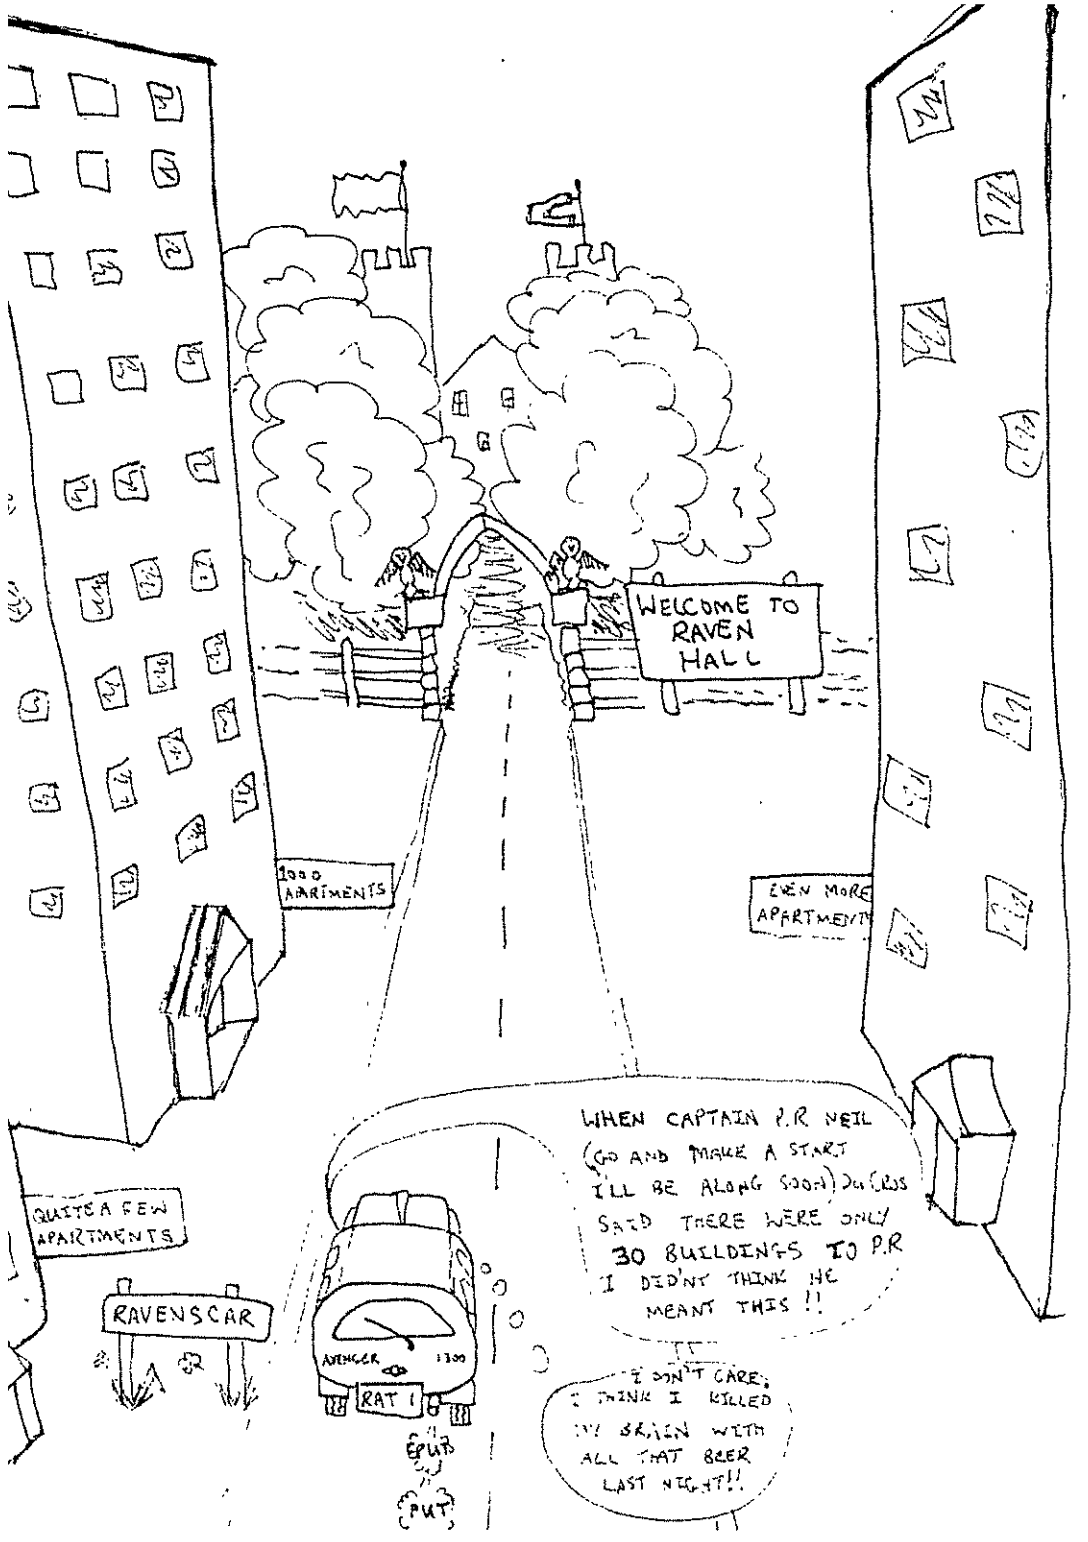 WELCOME TO
RAVEN
HALL
1000
APARTMENTS
EVEN MORE
APARTMENTS
QUITE A FEW
APARTMENTS
RAVENSCAR
WHEN CAPTAIN P.R NEIL
(GO AND MAKE A START
I'LL BE ALONG SOON) DUCROS
SAID THERE WERE ONLY
30 BUILDINGS TO P.R
I DID'NT THINK HE
MEANT THIS !!
AVENGER 1300
RAT 1
I DON'T CARE,
I THINK I KILLED
MY BRAIN WITH
ALL THAT BEER
LAST NIGHT!!
PUT